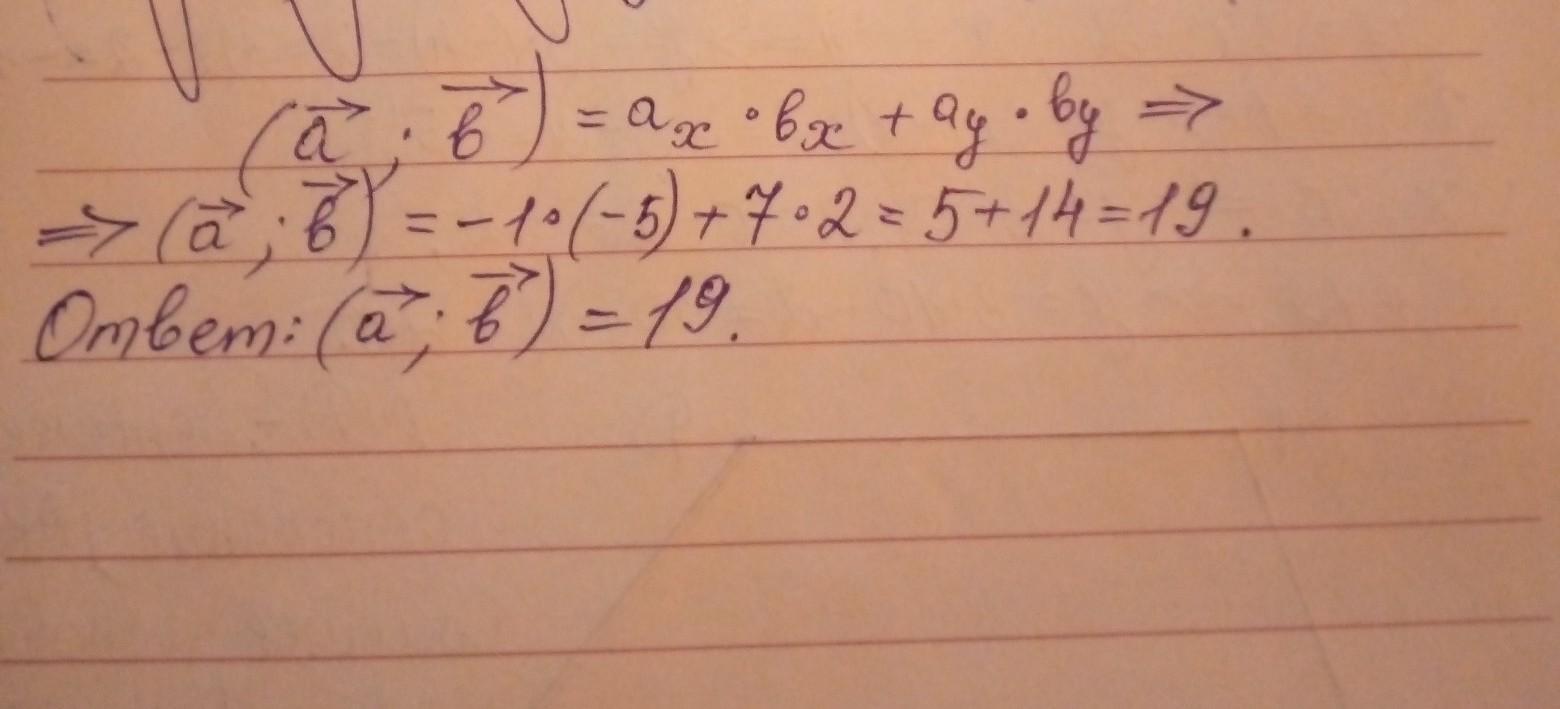 (a⃗ ; b⃗) = aₓ · bₓ + aᵧ · bᵧ ⇒
⇒ (a⃗ ; b⃗) = -1 · (-5) + 7 · 2 = 5 + 14 = 19.
Ответ: (a⃗ ; b⃗) = 19.